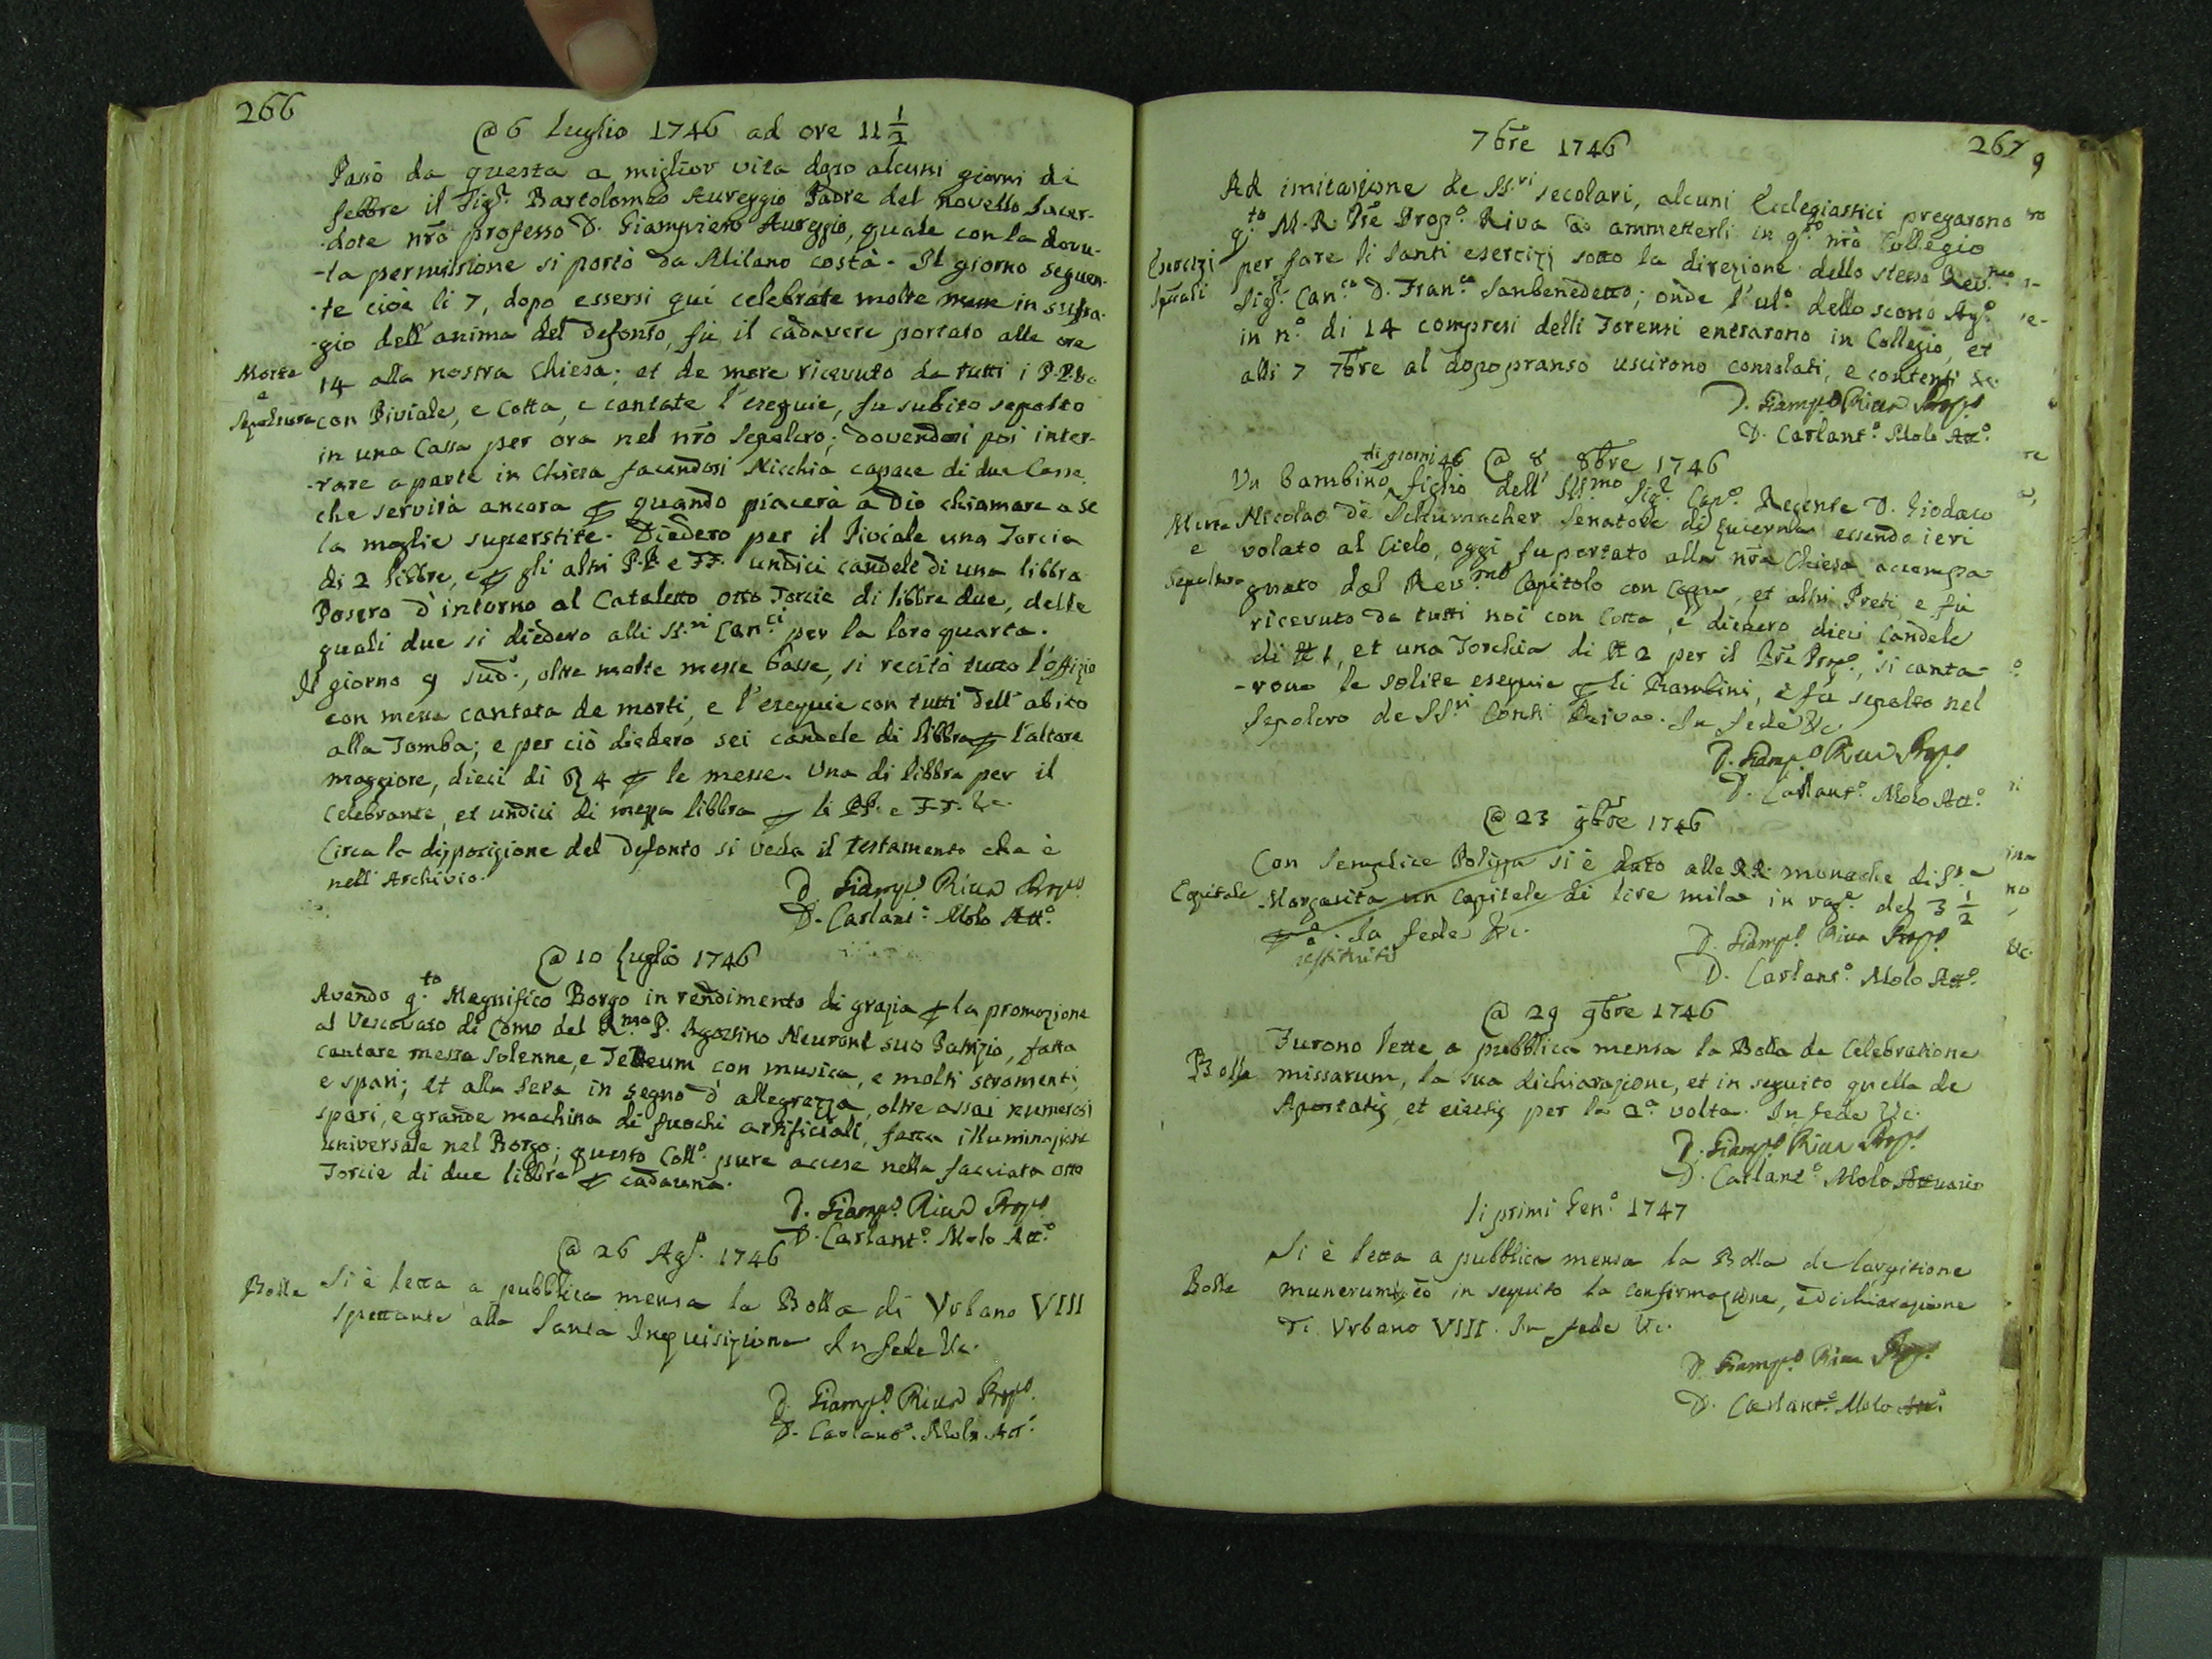 266
@ 6 Luglio 1746 ad ore 11 1/2
Passò da questa a miglior vita dopo alcuni giorni di
febbre il Sig.r Bartolomeo Aureggio Padre del novello Sacer-
-dote nrõ professo D. Giampietro Aureggio, quale con la dovu-
-ta permissione si portò da Milano costà. Il giorno seguen-
-te cioè li 7, dopo essersi quì celebrate molte messe in suffra-
-gio dell'anima del defonto, fù il cadavere portato alle ore
Morte
e
Sepoltura
14 alla nostra Chiesa; et de more ricevuto da tutti i P.P.
con Piviale, e Cotta, e cantate l'esequie, fu subito sepolto
in una Cassa per ora nel nrõ Sepolcro; dovendosi poi inter-
-rare a parte in Chiesa facendosi Nicchia capace di due Casse,
che servirà ancora p quando piacerà a Dio chiamare a se
la moglie superstite. Diedero per il Piviale una Torcia
di 2 libbre, e p gli altri P.P. e FF. undici candele di una libbra
Posero d'intorno al Cataletto otto Torcie di libbre due, delle
quali due si diedero alli SS.ri Can.ci per la loro quarta.
Il giorno 9 sud.o, oltre molte messe basse, si recitò tutto l'offizio
con messa cantata de morti, e l'esequie con tutti dell'abito
alla Tomba; e per ciò diedero sei candele di libbra p l'altare
maggiore, dieci di 4 p le messe. Una di libbra per il
Celebrante, et undici di mezza libbra p li PP. e FF. &c.
Circa la disposizione del defonto si veda il testamento che è
nell'Archivio.
D. Giamp.o Riva Prop.o
D. Carlant.o Molo Att.o
@ 10 Luglio 1746
Avendo q.to Magnifico Borgo in rendimento di grazia p la promozione
al Vescovato di Como del R.mo P. Agostino Neuroni suo Patrizio, fatta
cantare messa solenne, e TeDeum con musica, e molti stromenti,
e spari; et alla sera in segno d'allegrezza, oltre assai numerosi
spari, e grande machina di fuochi artificiali, fatta illuminazione
universale nel Borgo; questo Coll.o pure accese nella facciata otto
Torcie di due libbre p cadauna.
D. Giamp.o Riva Prop.o
D. Carlant.o Molo Att.o
@ 26 Ag.o 1746
Bolla
Si è letta a pubblica mensa la Bolla di Urbano VIII
spettante alla Santa Inquisizione In fede &c.
D. Giamp.o Riva Prop.o
D. Carlant.o Molo Att.o
7bre 1746
267
9
Ad imitazione de SS.ri secolari, alcuni Ecclegiastici pregarono
q.to M.R. Prẽ Prop.o Riva ammetterli in q.to nrõ Collegio
Esercizi
Spũali
per fare li Santi esercizj sotto la direzione dello stesso Rev.mo
Sig.r Can.co D. Fran.co Sanbenedetto; onde l'ul.o dello scorso Ag.o
in n.o di 14 compresi delli Forensi entrarono in Collegio, et
alli 7 7bre al dopopranso uscirono consolati, e contenti &c.
D. Giamp.o Riva Prop.o
D. Carlant.o Molo Att.o
@ 8 8bre 1746
di giorni 46
Un bambino figlio dell'Ill.mo Sig.r Cap.o Regente D. Giodaco
Morte
e
Sepoltura
Nicolao de Schumacher Senatore di Lucerna essendo ieri
volato al Cielo, oggi fu portato alla nrã Chiesa accompa-
gnato dal Rev.mo Capitolo con Cappa, et altri Preti, e fù
ricevuto da tutti noi con Cotta, e diedero dieci Candele
di ℔ 1, et una Torchia di ℔ 2 per il Prẽ Prop.o, si canta-
-rono le solite esequie p li Bambini, e fù sepolto nel
Sepolcro de SS.ri Conti Riva. In fede &c.
D. Giamp.o Riva Prop.o
D. Carlant.o Molo Att.o
@ 23 9bre 1746
Capitale
Con semplice Polizza si è dato alle RR. monache di S.ta
Margarita un Capitale di lire mila in rag.e del 3 1/2
p . In fede &c.
restituito
D. Giamp.o Riva Prop.o
D. Carlant.o Molo Att.o
@ 29 9bre 1746
Bolla
Furono lette a pubblica mensa la Bolla de Celebratione
missarum, la sua dichiarazione, et in seguito quella de
Apostatis, et eiectis per la 2.a volta. In fede &c.
D. Giamp.o Riva Prop.o
D. Carlant.o Molo Attuario
li primi Gen.o 1747
Bolla
Si è letta a pubblica mensa la Bolla de largitione
munerum, ed in seguito la Confirmazione, e dichiarazione
di Urbano VIII. In fede &c.
D. Giamp.o Riva Prop.o
D. Carlant.o Molo Att.o